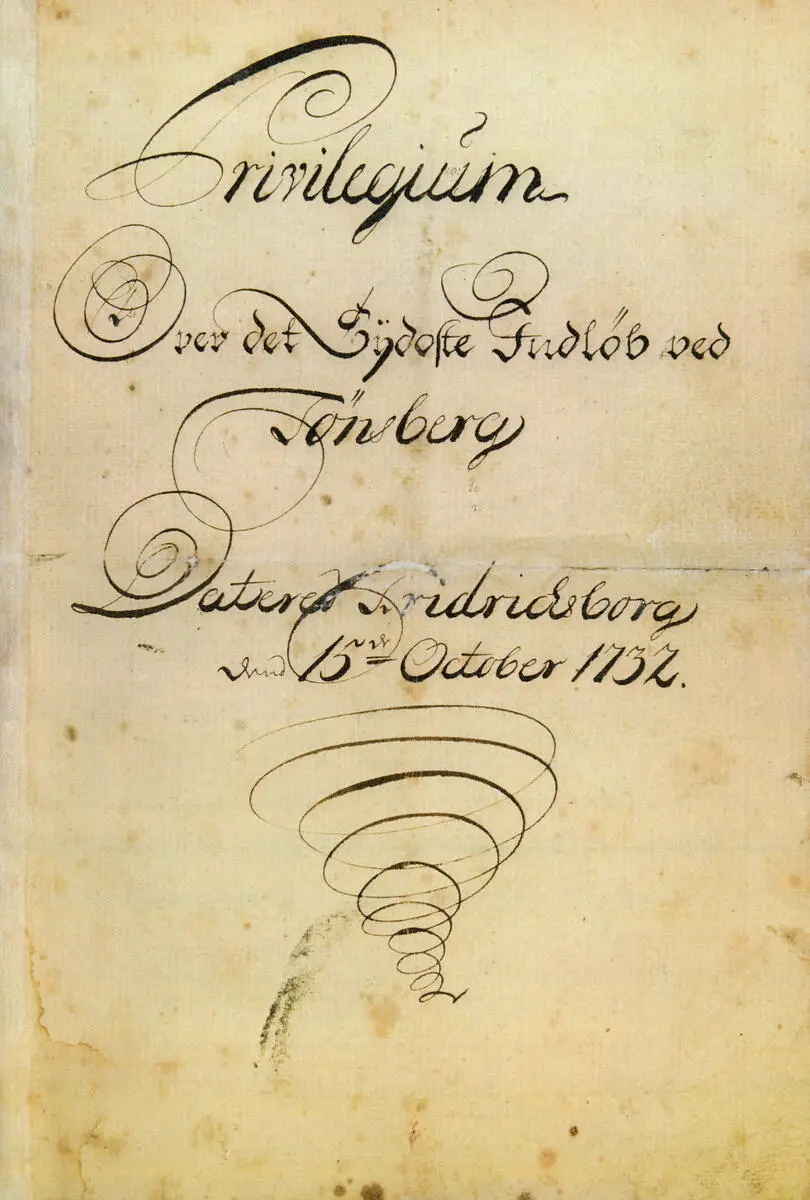 Privilegium
Over det Sÿdoste Indlöb ved
Tönsberg
Dateret Fridrichsborg
dend 15de October 1732.